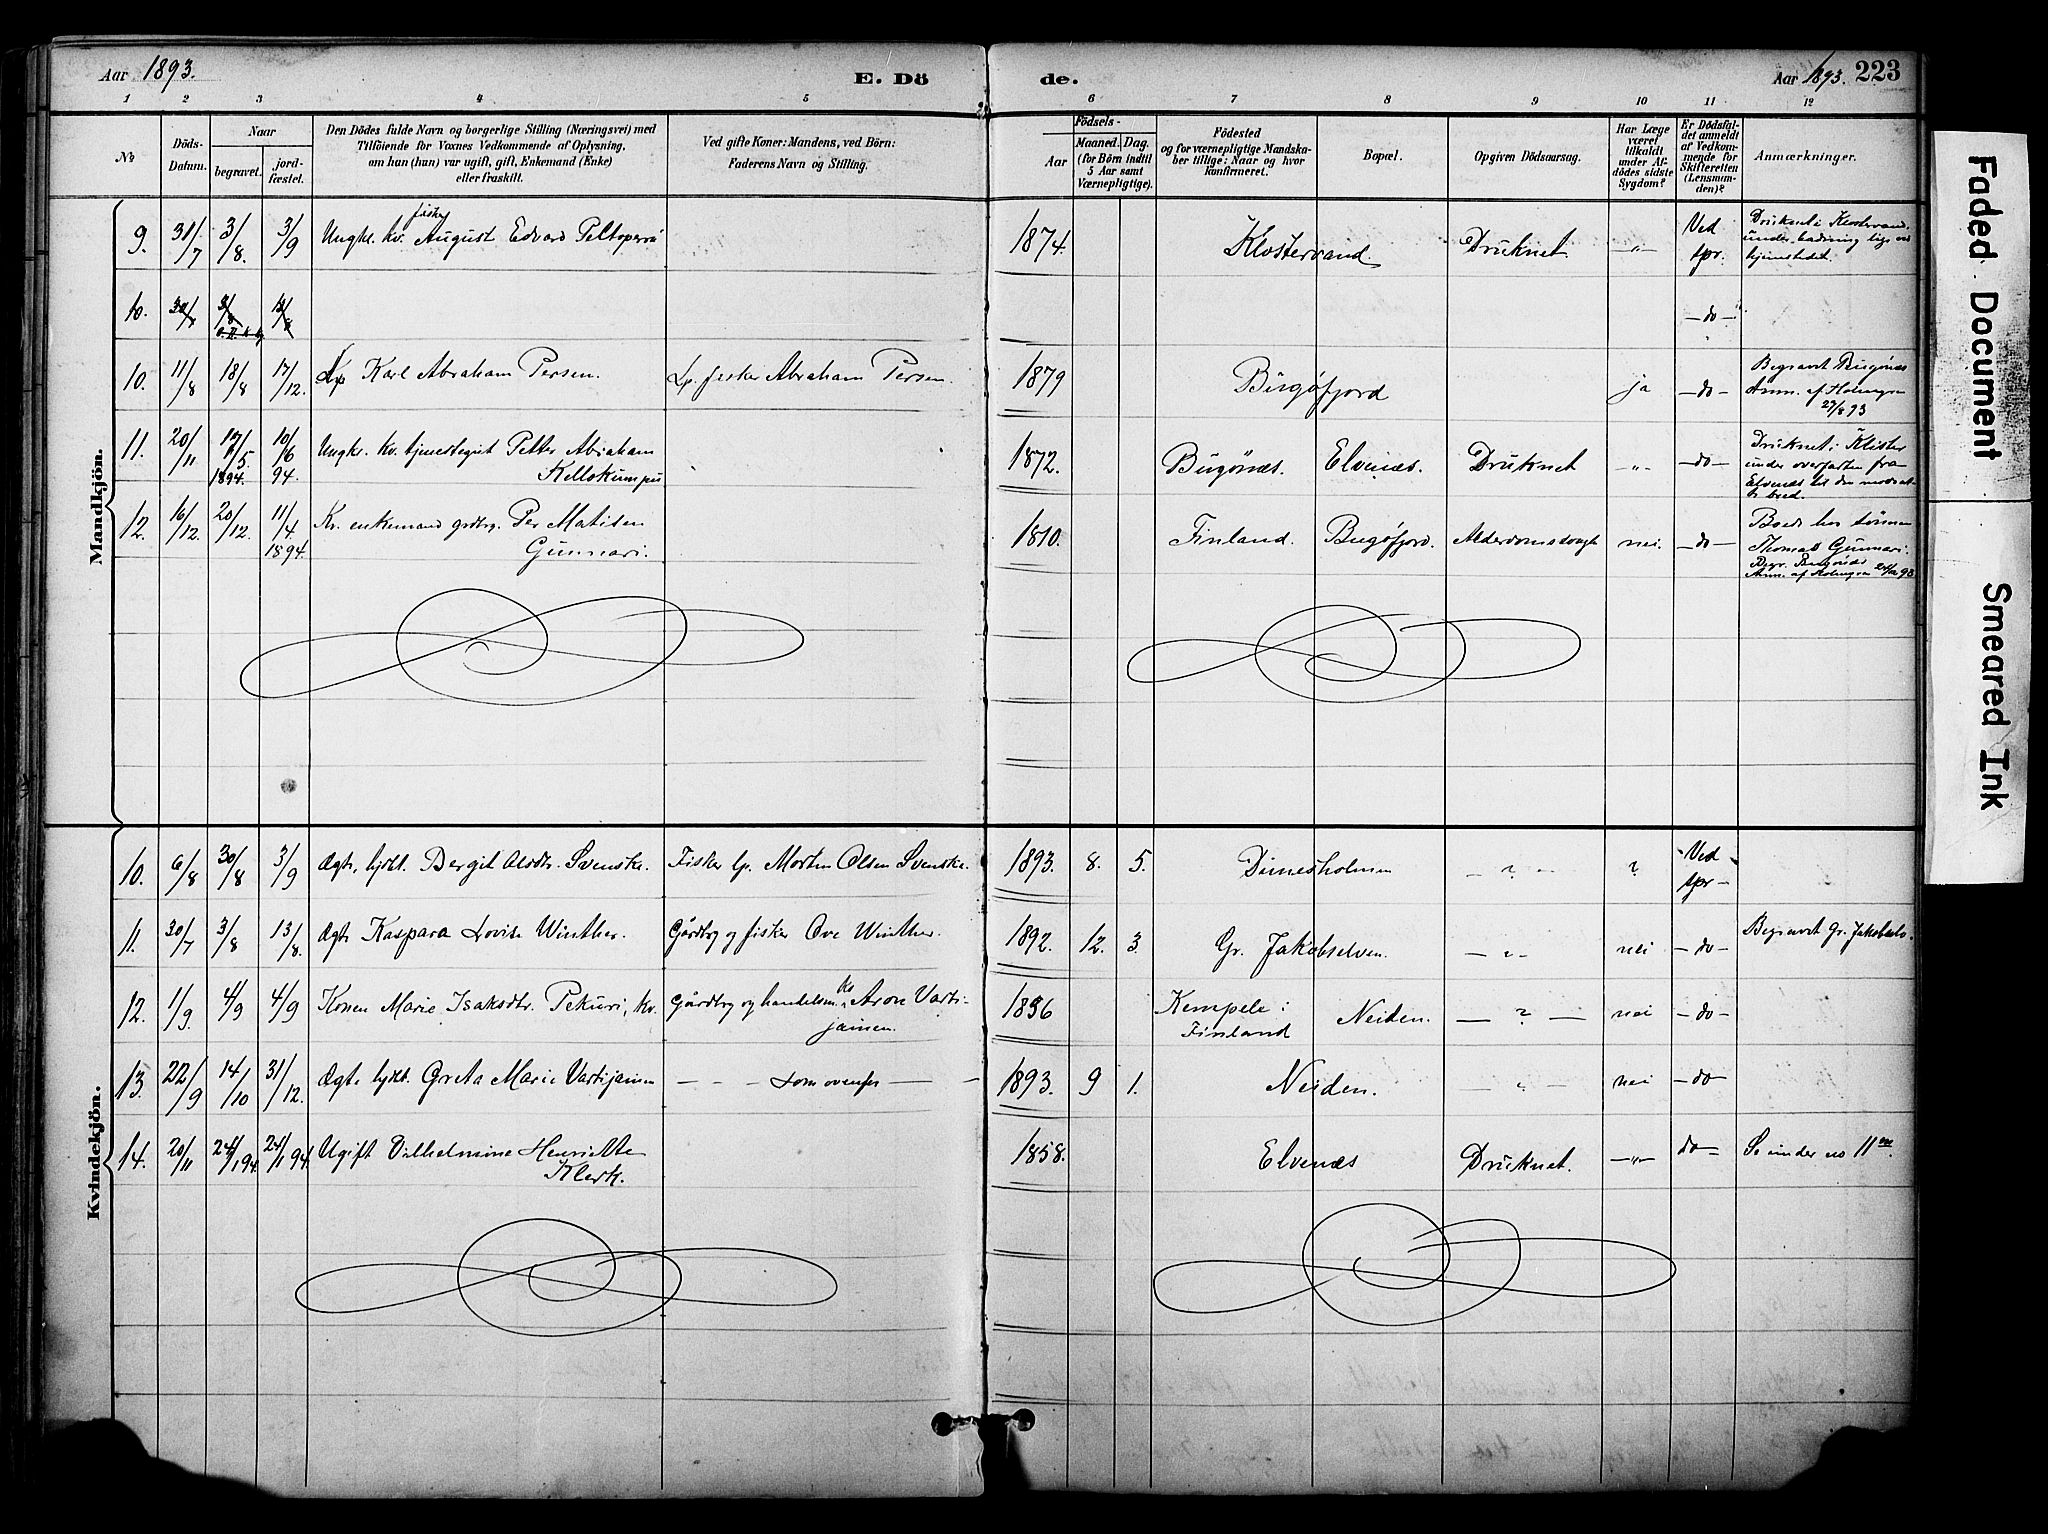 Aar 1893.
E. Dö
de.
Aar 1893. 223
1 2 3 4 5 6 7 8 9 10 11 12
No
Döds-
Datum.
Naar
begravet.
jord-
fæstet.
Den Dödes fulde Navn og borgerlige Stilling (Næringsvei) med
Tilföiende for Voxnes Vedkommende af Oplysning,
om han (hun) var ugift, gift, Enkemand (Enke)
eller fraskilt.
Ved gifte Koner: Mandens, ved Börn:
Faderens Navn og Stilling.
Födsels-
Aar
Maaned. Dag.
(for Börn indtil
5 Aar samt
Værnepligtige).
Födested
og for værnepligtige Mandska-
ber tillige: Naar og hvor
konfirmeret.
Bopæl.
Opgiven Dödsaarsag.
Har Læge
været
tilkaldt
under Af-
dödes sidste
Sygdom?
Er Dödsfal-
det anmeldt
af Vedkom-
mende for
Skifteretten
(Lensman-
den)?
Anmærkninger.
Mandkjön.
fisker
9. 31/7 3/8. 3/9 Ungkr. kv. August Edvard 1874. Klostervand. Druknet - " - Ved spr. Druknet i Klostervand,
under badning lige ved
hjemstedet.
10. 30/7 3/8 13/8 - do -
10. 11/8 18/8 17/12. Lp Karl Abraham Persen. Lp. fisker Abraham Persen. 1879 Bugøfjord ja - do - Begravet Bugönæs
Anm. af Holmgren
27/8 93
11. 20/11 17/5 1894. 10/6 94. Ungkr. kv. tjenestegut Petter Abraham
Kellokumpu 1872. Bugönæs. Elvenæs. Druknet - " - - do - Druknet i
under overfarten fra
Elvenæs til den
bred.
12. 16/12. 20/12. 11/4. 1894. Kv. enkemand grdbr. Per Matisen
Gunnari. 1810. Finland. Bugøfjord. nei. - do - Boede hos sönnen
Thomas Gunnari.
Begr. Bugönæs
Anm. af Holmgren
Kvindekjön.
10. 6/8 30/8 3/9 Ægte, hjdbt. Bergit Olsdtr. Svenske. Fisker lp. Morten Olsen Svenske. 1893. 8. 5. Dumesholmen - ? - ? Ved spr -
11. 30/7 3/8 13/8. Ægte Kaspara Lovise Winther. Gårdbr og fisker Ove Winther. 1892. 12. 3. Gr. Jakobselven. - " - nei - do - Begravet Gr. Jakobselv.
12. 1/9. 4/9 4/9 Konen Marie Isaksdtr. Pekuri, kv. Gårdbr og handelsm. kv Aron Varti-
jainen. 1836 Kempele i
Finland Neiden. - ? - nei - do -
13. 22/9 14/10 31/12. Ægte hjdbt. Greta Marie Vartijainen - - - som ovenfor - - 1893. 9 1. Neiden. - " - nei - do -
14. 20/11 24/1 94. 24/1 94. Ugift Vilhelmine Henriette
Klerk. 1858. Elvenæs Druknet. - " - do - Se under no 11
Faded Document
Smeared Ink